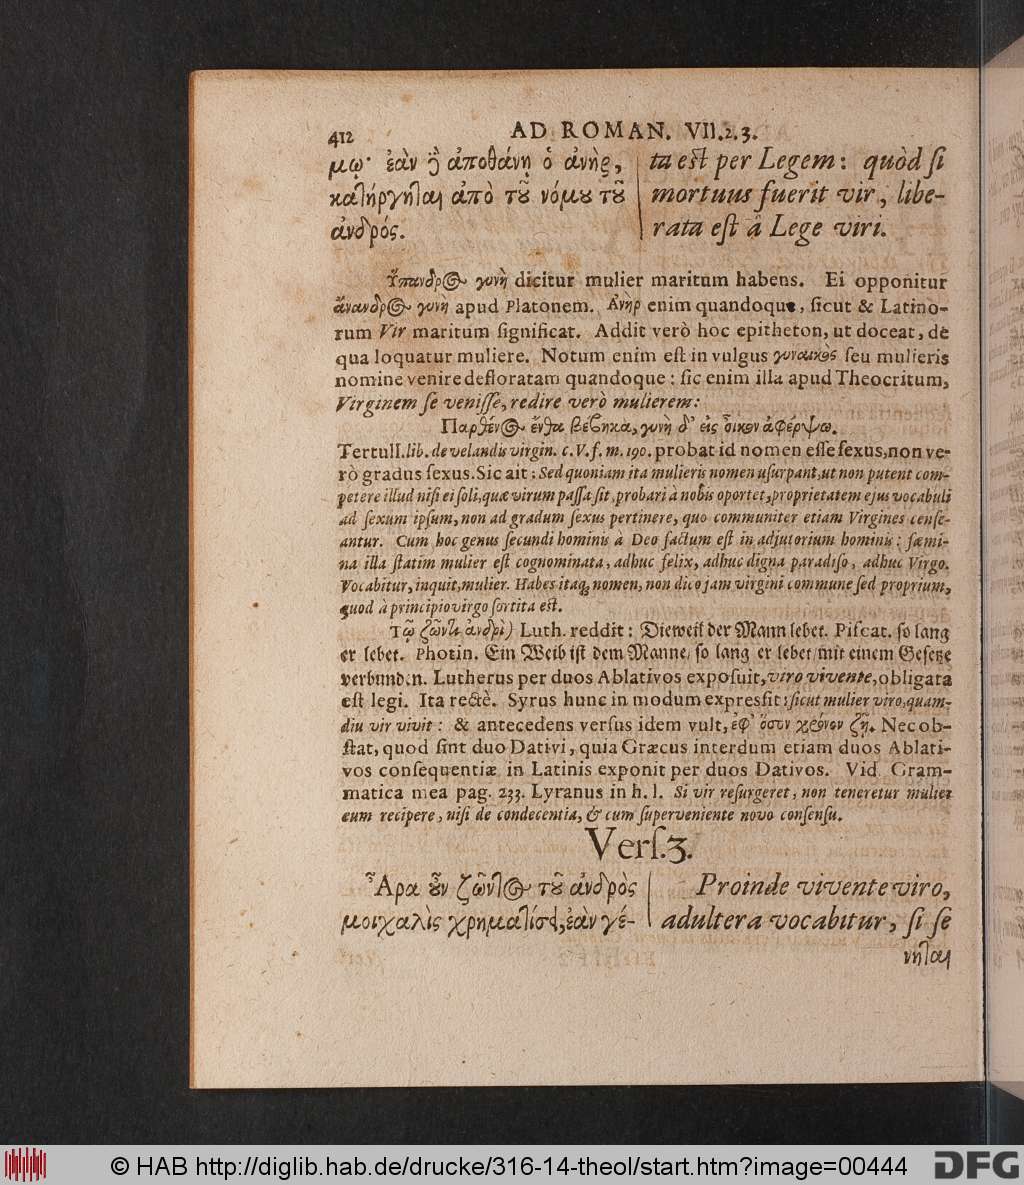 412 AD ROMAN. VII.2.3.
μῳ· ἐὰν δὲ ἀποθάνῃ ὁ ἀνὴρ,
κατήργηται ἀπὸ τοῦ νόμου τοῦ
ἀνδρός.
ta eſt per Legem: quòd ſi
mortuus fuerit vir, libe-
rata eſt â Lege viri.
Ὕπανδρος γυνὴ dicitur mulier maritum habens. Ei opponitur
ἄνανδρος γυνὴ apud Platonem. Ἀνὴρ enim quandoque, ſicut & Latino-
rum Vir maritum ſignificat. Addit verò hoc epitheton, ut doceat, de
qua loquatur muliere. Notum enim eſt in vulgus γυναικὸς ſeu mulieris
nomine venire defloratam quandoque: ſic enim illa apud Theocritum,
Virginem ſe veniſſe, redire verò mulierem:
Παρθένος ἔνθα βέβηκα, γυνὴ δ' εἰς οἶκον ἀφέρψω.
Tertull. lib. de velandis virgin. c. V. f. m. 190. probat id nomen eſſe ſexus, non ve-
rò gradus ſexus. Sic ait: Sed quoniam ita mulieris nomen uſurpant, ut non putent com-
petere illud niſi ei ſoli, quæ virum paſſa ſit, probari a nobis oportet, proprietatem ejus vocabuli
ad ſexum ipſum, non ad gradum ſexus pertinere, quo communiter etiam Virgines cenſe-
antur. Cum hoc genus ſecundi hominis à Deo factum eſt in adjutorium hominis: fæmi-
na illa ſtatim mulier eſt cognominata, adhuc felix, adhuc digna paradiſo, adhuc Virgo.
Vocabitur, inquit, mulier. Habes itaq; nomen, non dico jam virgini commune ſed proprium,
quod à principio virgo ſortita eſt.
Τῷ ζῶντι ἀνδρὶ) Luth. reddit: Dieweil der Mann lebet. Piſcat. ſo lang
er lebet. Photin. Ein Weib iſt dem Manne/ ſo lang er lebet/ mit einem Geſetze
verbunden. Lutherus per duos Ablativos expoſuit, viro vivente, obligata
eſt legi. Ita rectè. Syrus hunc in modum expreſſit: ſicut mulier viro, quam-
diu vir vivit: & antecedens verſus idem vult, ἐφ' ὅσον χρόνον ζῇ. Nec ob-
ſtat, quod ſint duo Dativi, quia Græcus interdum etiam duos Ablati-
vos conſequentiæ in Latinis exponit per duos Dativos. Vid. Gram-
matica mea pag. 233. Lyranus in h. l. Si vir reſurgeret, non teneretur mulier
eum recipere, niſi de condecentia, & cum ſuperveniente novo conſenſu.
Verſ. 3.
Ἆρα οὖν ζῶντος τοῦ ἀνδρὸς
μοιχαλὶς χρηματίσει, ἐὰν γέ-
Proinde vivente viro,
adultera vocabitur, ſi ſe
νηται
© HAB http://diglib.hab.de/drucke/316-14-theol/start.htm?image=00444
DFG